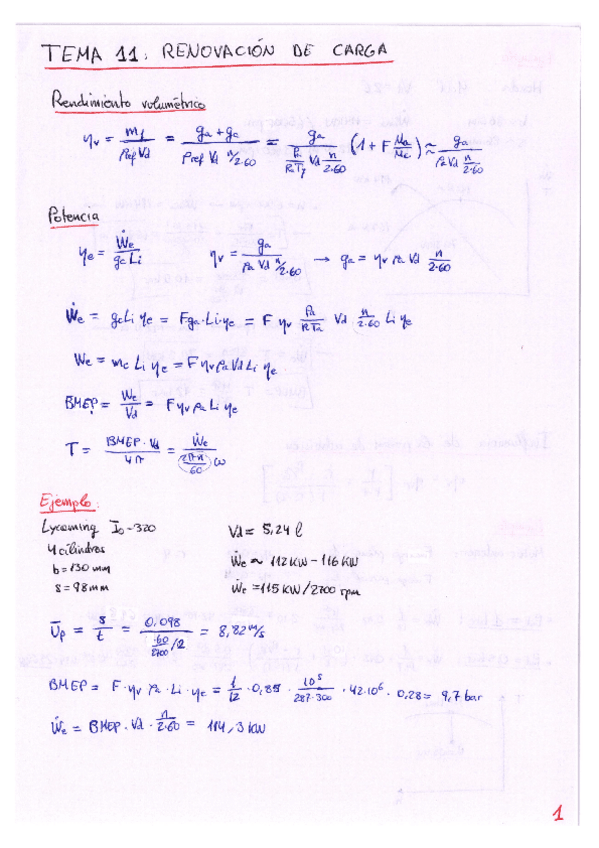 TEMA 11: RENOVACIÓN DE CARGA
Rendimiento volumétrico
ηv = m1 / (ρref Vd) = (ga + gc) / (ρref Vd n/2·60) = ga / (Pa/(RaTy) Vd n/2·60) (1 + F Ma/Mc) ≈ ga / (ρa Vd n/2·60)
Potencia
ηe = Ẇe / (gc Li)    ηv = ga / (ρa Vd n/2·60) → ga = ηv ρa Vd n/2·60
Ẇe = gc Li ηe = F ga · Li · ηe = F ηv Pa/(R Ta) Vd n/2·60 Li ηe
We = mc Li ηe = F ηv ρa Vd Li ηe
BMEP = We/Vd = F ηv ρa Li ηe
T = BMEP · Vd / 4π = Ẇe / (2π·n/60) ω
Ejemplo:
Lycoming Io-320    Vd = 5,24 l
4 cilindros    Ẇe ≈ 112 KW - 116 KW
b = 130 mm    Ẇe = 115 KW / 2700 rpm
s = 98 mm
Ūp = s/t = 0,098 / (60/2700 /2) = 8,82 m/s
BMEP = F · ηv ρa · Li · ηe = 1/12 · 0,85 · 10⁵/(287·300) · 42·10⁶ · 0,28 = 9,7 bar
Ẇe = BMEP · Vd · n/2·60 = 114,3 KW
1